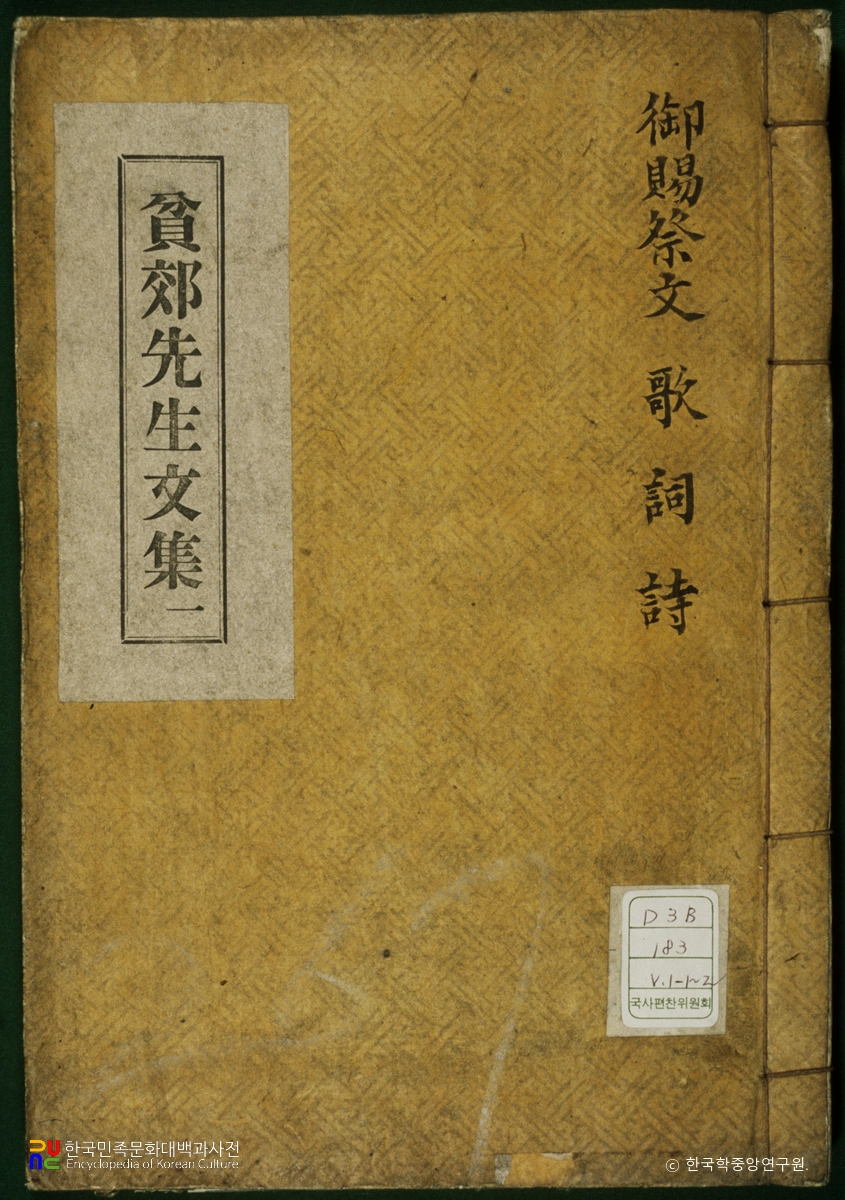 御賜祭文 歌 詞 詩
貧郊先生文集 一
D3B
183
V.1-1~2
국사편찬위원회
한국민족문화대백과사전
Encyclopedia of Korean Culture
© 한국학중앙연구원.